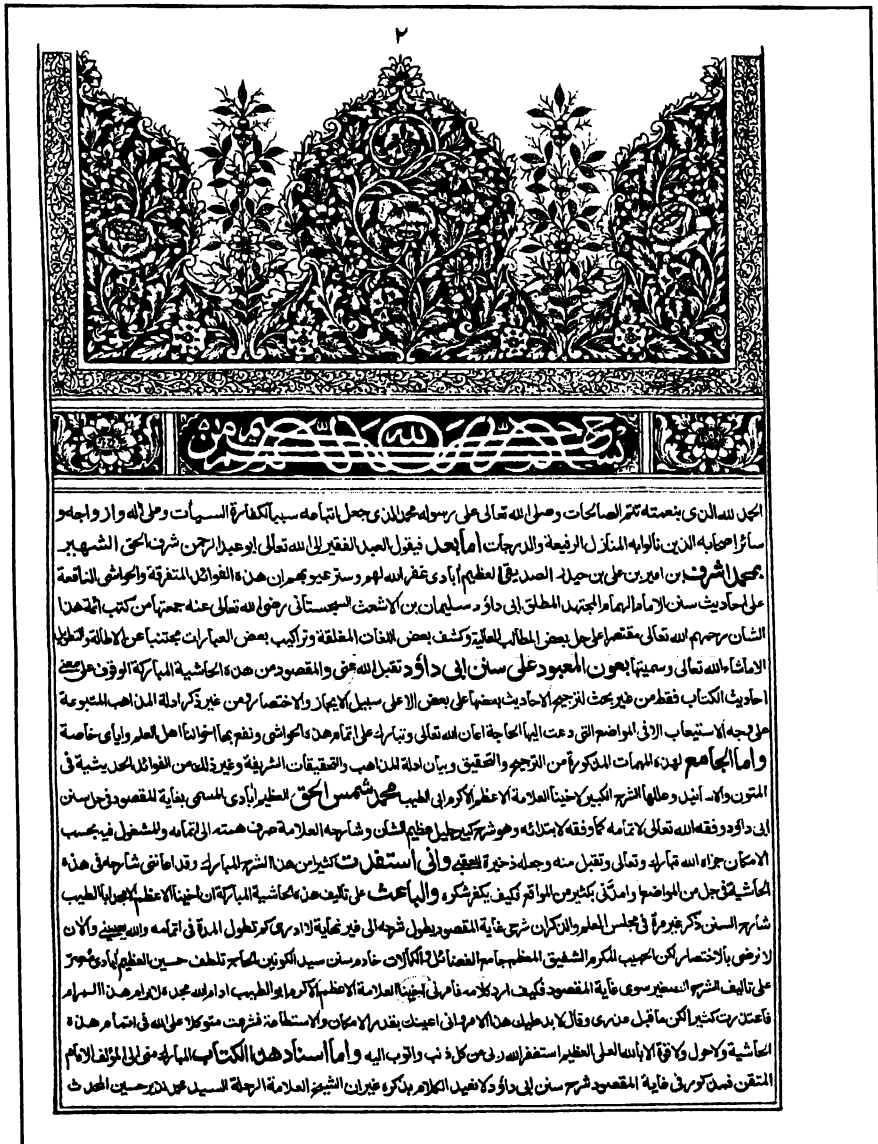 ٢
بسم الله الرحمن الرحيم
الحمد لله الذى بنعمته تتم الصالحات وصلى الله تعالى على رسوله محمد الذى جعل اتباعه سببا لكفارة السيأت وعلى اله وازواجه و
سائر اصحابه الذين نالوا به المنازل الرفيعة والدرجات اما بعد فيقول العبد الفقير الى الله تعالى ابو عبد الرحمن شرف الحق الشهير
بمحمد اشرف بن امير بن على بن حيدر الصديقى العظيم ابادى غفر الله لهم وستر عيوبهم ان هذه الفوائد المتفرقة والحواشى النافعة
على احاديث سنن الامام الهمام المجتهد المطلق ابى داؤد سليمان بن الاشعث السجستانى رضى الله تعالى عنه جمعتها من كتب ائمة هذا
الشان رحمهم الله تعالى مقتصرا على حل بعض المطالب العالية وكشف بعض اللغات المغلقة وتراكيب بعض العبارات مجتنبا عن الاطالة والتطويل
الا ماشاء الله تعالى وسميتها بعون المعبود على سنن ابى داؤد تقبل الله منى والمقصود من هذه الحاشية المباركة الوقوف على معنى
احاديث الكتاب فقط من غير بحث لترجيح الاحاديث بعضها على بعض الا على سبيل الايجاز والاختصار ومن غير ذكر ادلة المذاهب المتبوعة
على وجه الاستيعاب الا فى المواضع التى دعت اليها الحاجة اعان الله تعالى وتبارك على اتمام هذه الحواشى ونفع بها اخواننا اهل العلم واياى خاصة
واما الجامع لهذه المهمات المذكورة من الترجيح والتحقيق وبيان ادلة المذاهب والتحقيقات الشريفة وغير ذلك من الفوائد الحديثية فى
المتون والاسانيد وعللها الشرح الكبير لاخينا العلامة الاعظم الاكرم ابى الطيب محمد شمس الحق العظيم ابادى المسمى بغاية المقصود فى حل سنن
ابى داؤد وفقه الله تعالى لاتمامه كما وفقه لابتدائه وهو شرح كبير جليل عظيم الشان وشارحه العلامة صرف همته الى اتمامه والمشغول فيه بحسب
الامكان جزاه الله تبارك وتعالى وتقبل منه وجعله ذخيرة للعقبى وانى استفدت كثيرا من هذا الشرح المبارك وقد اعاننى شارحه فى هذه
الحاشية فى جل من المواضع وامدنى بكثير من المواقع فكيف يكفر شكره والباعث على تاليف هذه الحاشية المباركة ان اخينا الاعظم ابا الطيب
شارح السنن ذكر غير مرة فى مجلس العلم والذكر ان شرحى غاية المقصود يطول شرحه الى غير نهاية لا ادرى كم تطول المدة فى اتمامه والله يعيننى والان
لا نرضى بالاختصار لكن الحبيب المكرم الشفيق المعظم جامع الفضائل والكمالات خادم سنن سيد الكونين الحاج تلطف حسين العظيم ابادى مصر
على تاليف الشرح الصغير سوى غاية المقصود فكيف ارد كلامه فامرنى اخينا العلامة الاعظم الاكرم ابو الطيب ادام الله مجده لابرام هذا المرام
فاعتذرت كثيرا لكن ما قبل عذرى وقال لا بد عليك هذا الامر وانى اعينك بقدر الامكان والاستطاعة فشرعت متوكلا على الله فى اتمام هذه
الحاشية ولا حول ولا قوة الا بالله العلى العظيم استغفر الله ربى من كل ذنب واتوب اليه واما اسناد هذا الكتاب المبارك منى الى المؤلف الامام
المتقن فمذكور فى غاية المقصود شرح سنن ابى داؤد لا نعيد الكلام بذكره غير ان الشيخ العلامة الرحلة السيد محمد نذير حسين المحدث